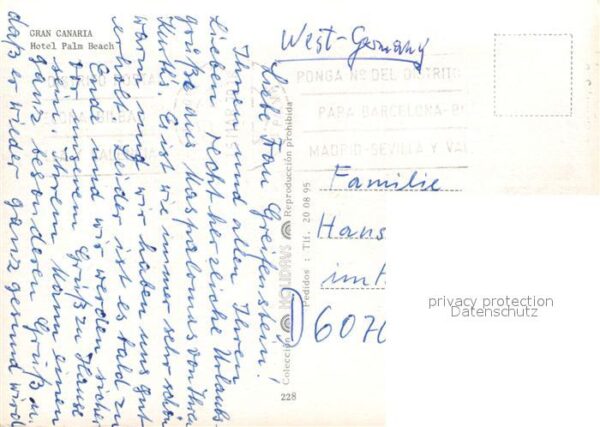 GRAN CANARIA
Hotel Palm Beach
West-Germany
PONGA Nº DEL DISTRITO
PARA BARCELONA-B
MADRID-SEVILLA Y VAL
Liebe Frau Greifenstein!
Ihnen und allen Ihren
Lieben recht herzliche Urlaubs-
grüße aus Maspalomas von Ihren
Es ist wie immer sehr schön
warm und wir haben uns gut
erholt. Leider ist es bald zu
Ende und wir werden sicher
vor unserem Gruß zu Hause
sein. Ihrem Mann einen
ganz besonderen Gruß u.
daß er wieder ganz gesund wird
Colección HOLIDAYS Reproducción prohibida
Pedidos : Tlf. 20 08 95
228
Familie
Hans
im
607
privacy protection
Datenschutz